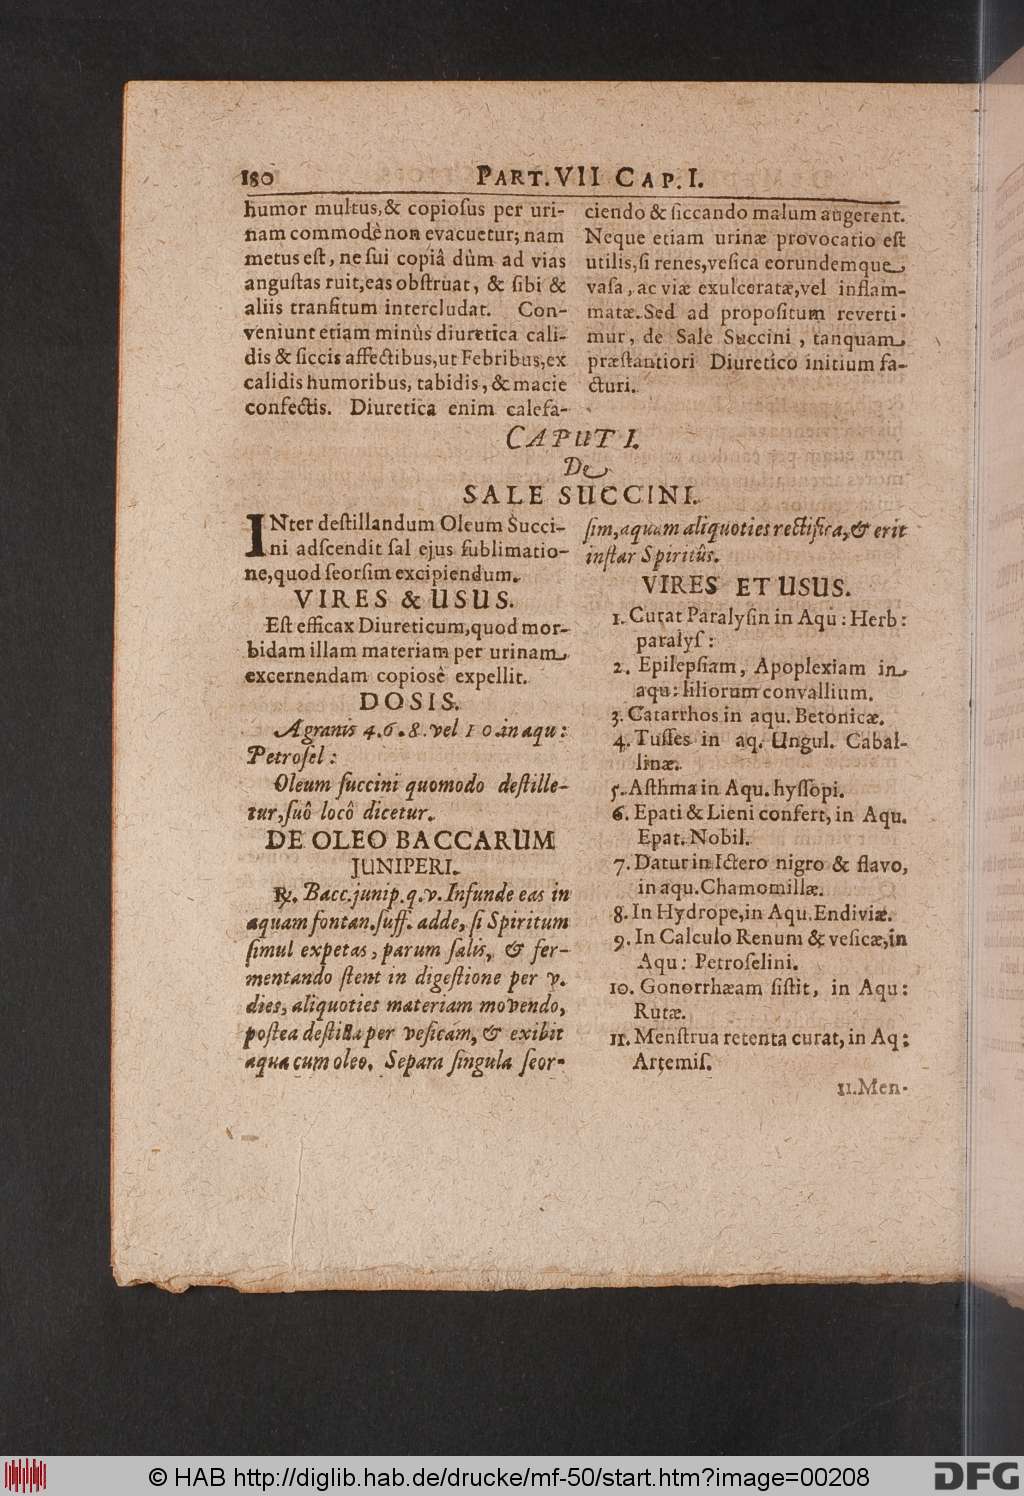 180
PART. VII CAP. I.
humor multus, & copiosus per uri-
nam commodè non evacuetur; nam
metus est, ne sui copiâ dùm ad vias
angustas ruit, eas obstruat, & sibi &
aliis transitum intercludat. Con-
veniunt etiam minùs diuretica cali-
dis & siccis affectibus, ut Febribus, ex
calidis humoribus, tabidis, & macie
confectis. Diuretica enim calefa-
ciendo & siccando malum augerent.
Neque etiam urinæ provocatio est
utilis, si renes, vesica eorundemque
vasa, ac viæ exulceratæ, vel inflam-
matæ. Sed ad propositum reverti-
mur, de Sale Succini, tanquam
præstantiori Diuretico initium fa-
cturi.
CAPUT I.
De
SALE SUCCINI.
INter destillandum Oleum Succi-
ni adscendit sal ejus sublimatio-
ne, quod seorsim excipiendum.
VIRES & USUS.
Est efficax Diureticum, quod mor-
bidam illam materiam per urinam
excernendam copiosè expellit.
DOSIS.
A granis 4. 6. 8. vel 10. in aqu:
Petrosel:
Oleum succini quomodo destille-
tur, suô locô dicetur.
DE OLEO BACCARUM
JUNIPERI.
℞. Bacc. junip. q. v. Infunde eas in
aquam fontan. suff. adde, si Spiritum
simul expetas, parum salis, & fer-
mentando stent in digestione per v.
dies, aliquoties materiam movendo,
postea destilla per vesicam, & exibit
aqua cum oleo. Separa singula seor-
sim, aquam aliquoties rectifica, & erit
instar Spiritûs.
VIRES ET USUS.
1. Curat Paralysin in Aqu: Herb:
paralys:
2. Epilepsiam, Apoplexiam in
aqu: liliorum convallium.
3. Catarrhos in aqu. Betonicæ.
4. Tusses in aq. Ungul. Cabal-
linæ.
5. Asthma in Aqu. hyssopi.
6. Epati & Lieni confert, in Aqu.
Epat. Nobil.
7. Datur in Ictero nigro & flavo,
in aqu. Chamomillæ.
8. In Hydrope, in Aqu. Endiviæ.
9. In Calculo Renum & vesicæ, in
Aqu: Petroselini.
10. Gonorrhæam sistit, in Aqu:
Rutæ.
11. Menstrua retenta curat, in Aq:
Artemis.
11. Men-
© HAB http://diglib.hab.de/drucke/mf-50/start.htm?image=00208
DFG